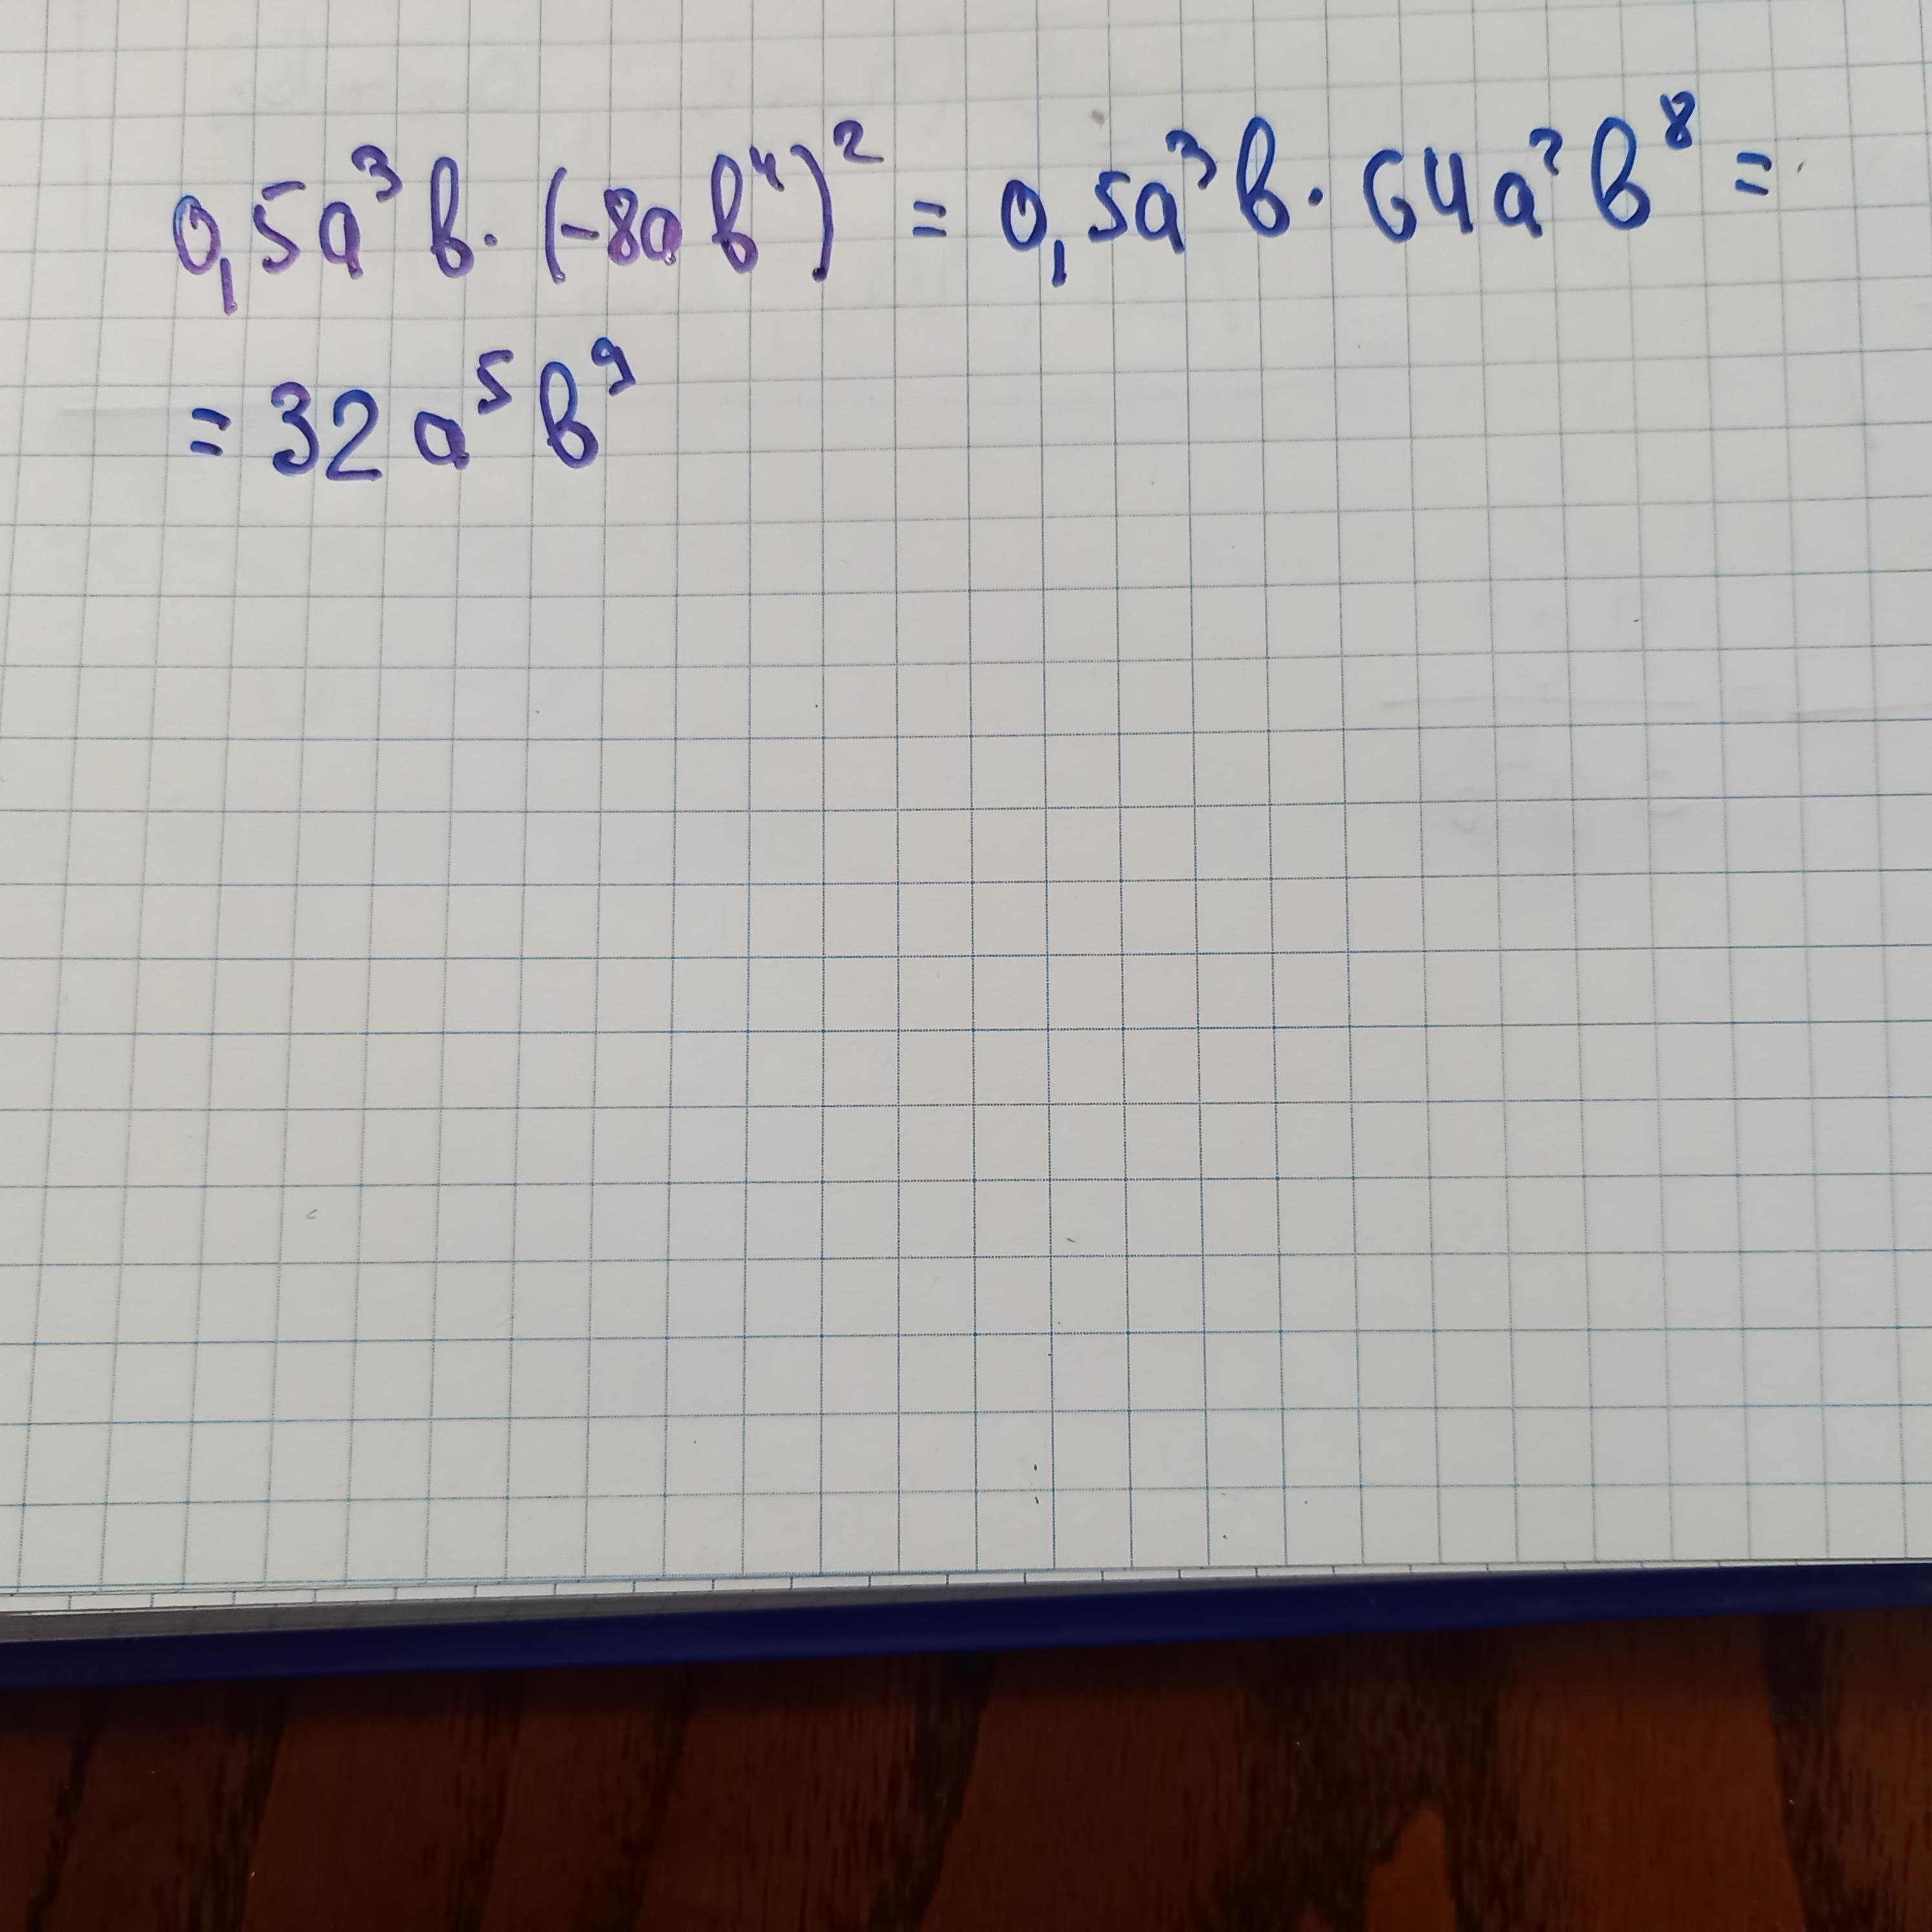 0,5a³b · (-8ab⁴)² = 0,5a³b · 64a²b⁸ =
= 32a⁵b⁹